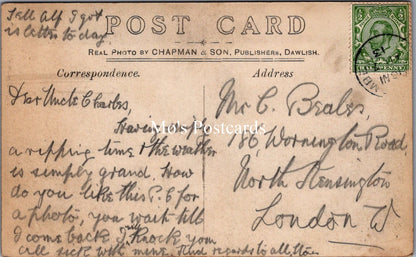 Tell Alf I got
is letter to day.
POST CARD
REAL PHOTO BY CHAPMAN & SON, PUBLISHERS, DAWLISH.
Correspondence.
Address
HALF PENNY
Dear Uncle Charles,
Having
a ripping time & the weather
is simply grand. How
do you like this P.C for
a photo, you wait till
I come back I knock your
call sick with mine. Kind regards to all
Mr C. Beales,
186, Wornington Road
North Kensington
London W
Mo's Postcards